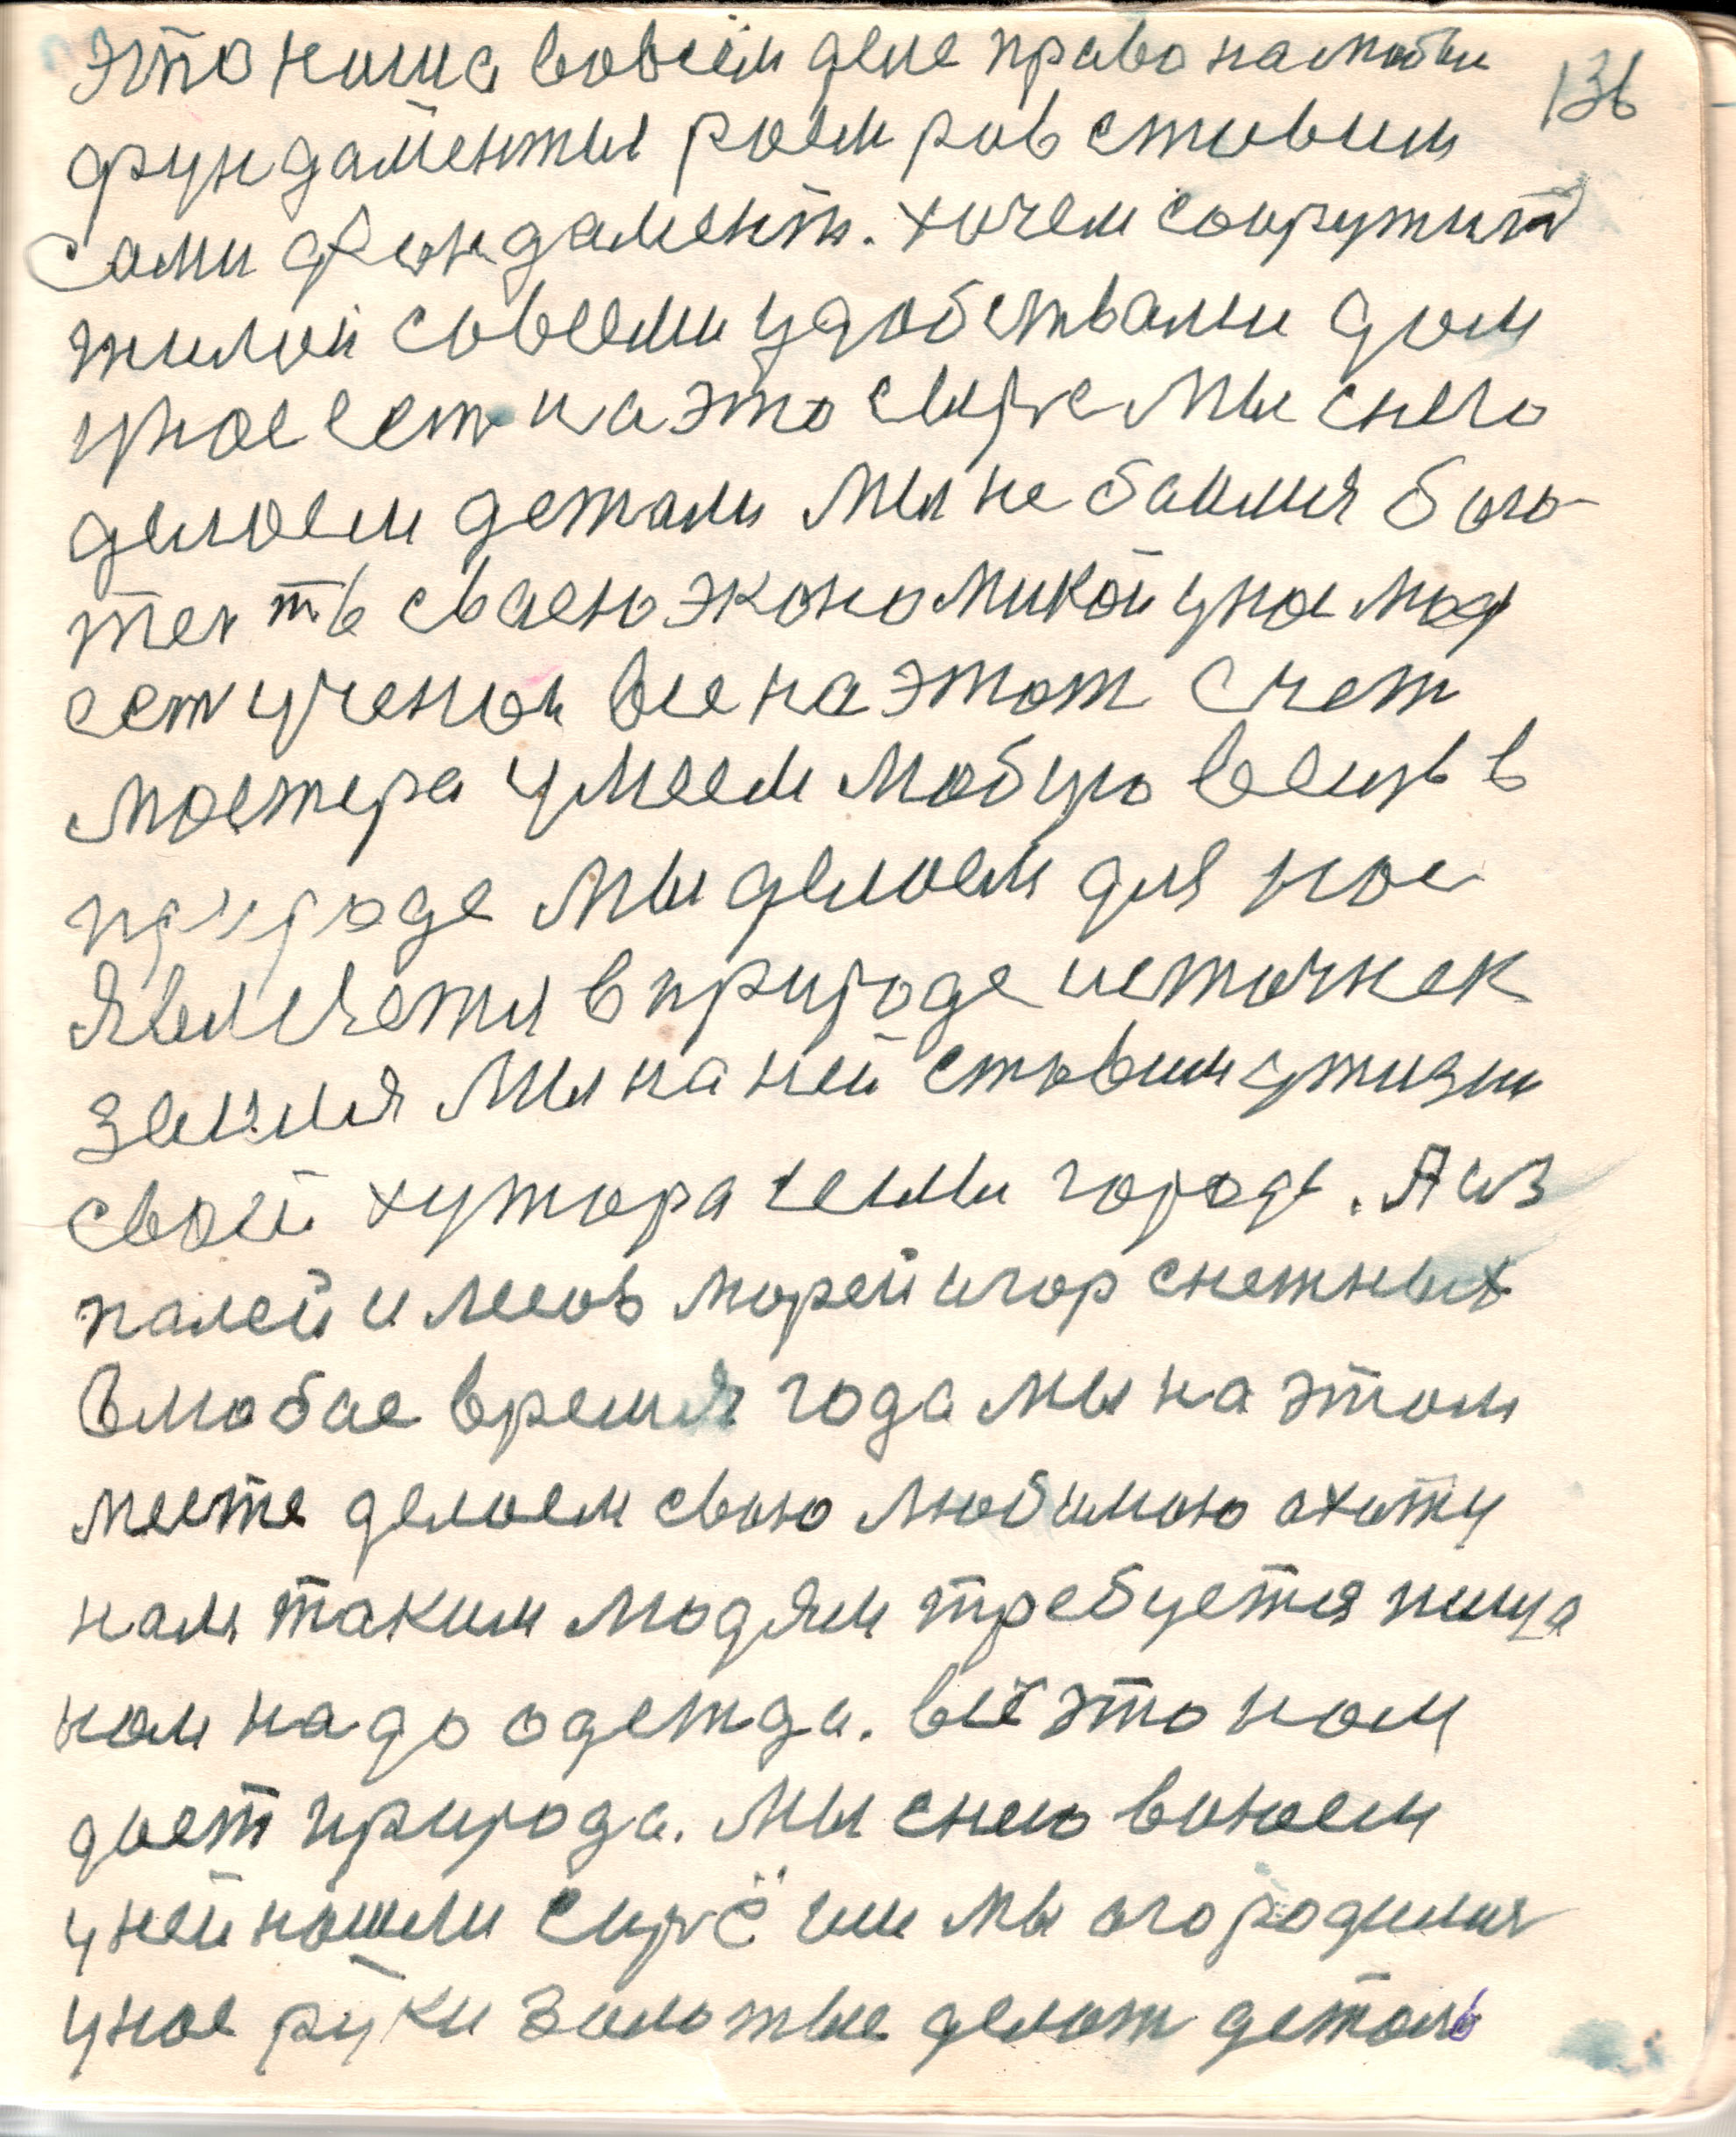 это наша вовсём деле право на любые
136
фундаменты роем ров ставим
сами фундамент. хочем сооружит
жилой совсеми удобствами дом
унас ест на это сырье Мы снего
делаем детали Мы не баимся бога-
теем сваею экономикой унас люд
ест ученои все на этот счет
мастера умеем любую вещь в
природе Мы делаем для нас
является в природе источнек
земля Мы на ней ставим ужизни
свой хутора села город. А из
палей и лесов морей игор снежных
Влюбае время года мы на этом
месте делаем свою любимою охоту
нам таким людям требуется пища
нам надо одежда. всё это нам
дает природа. Мы снею воюем
у ней нашли сырё им мы огородимся
унас руки золотые делают деталь